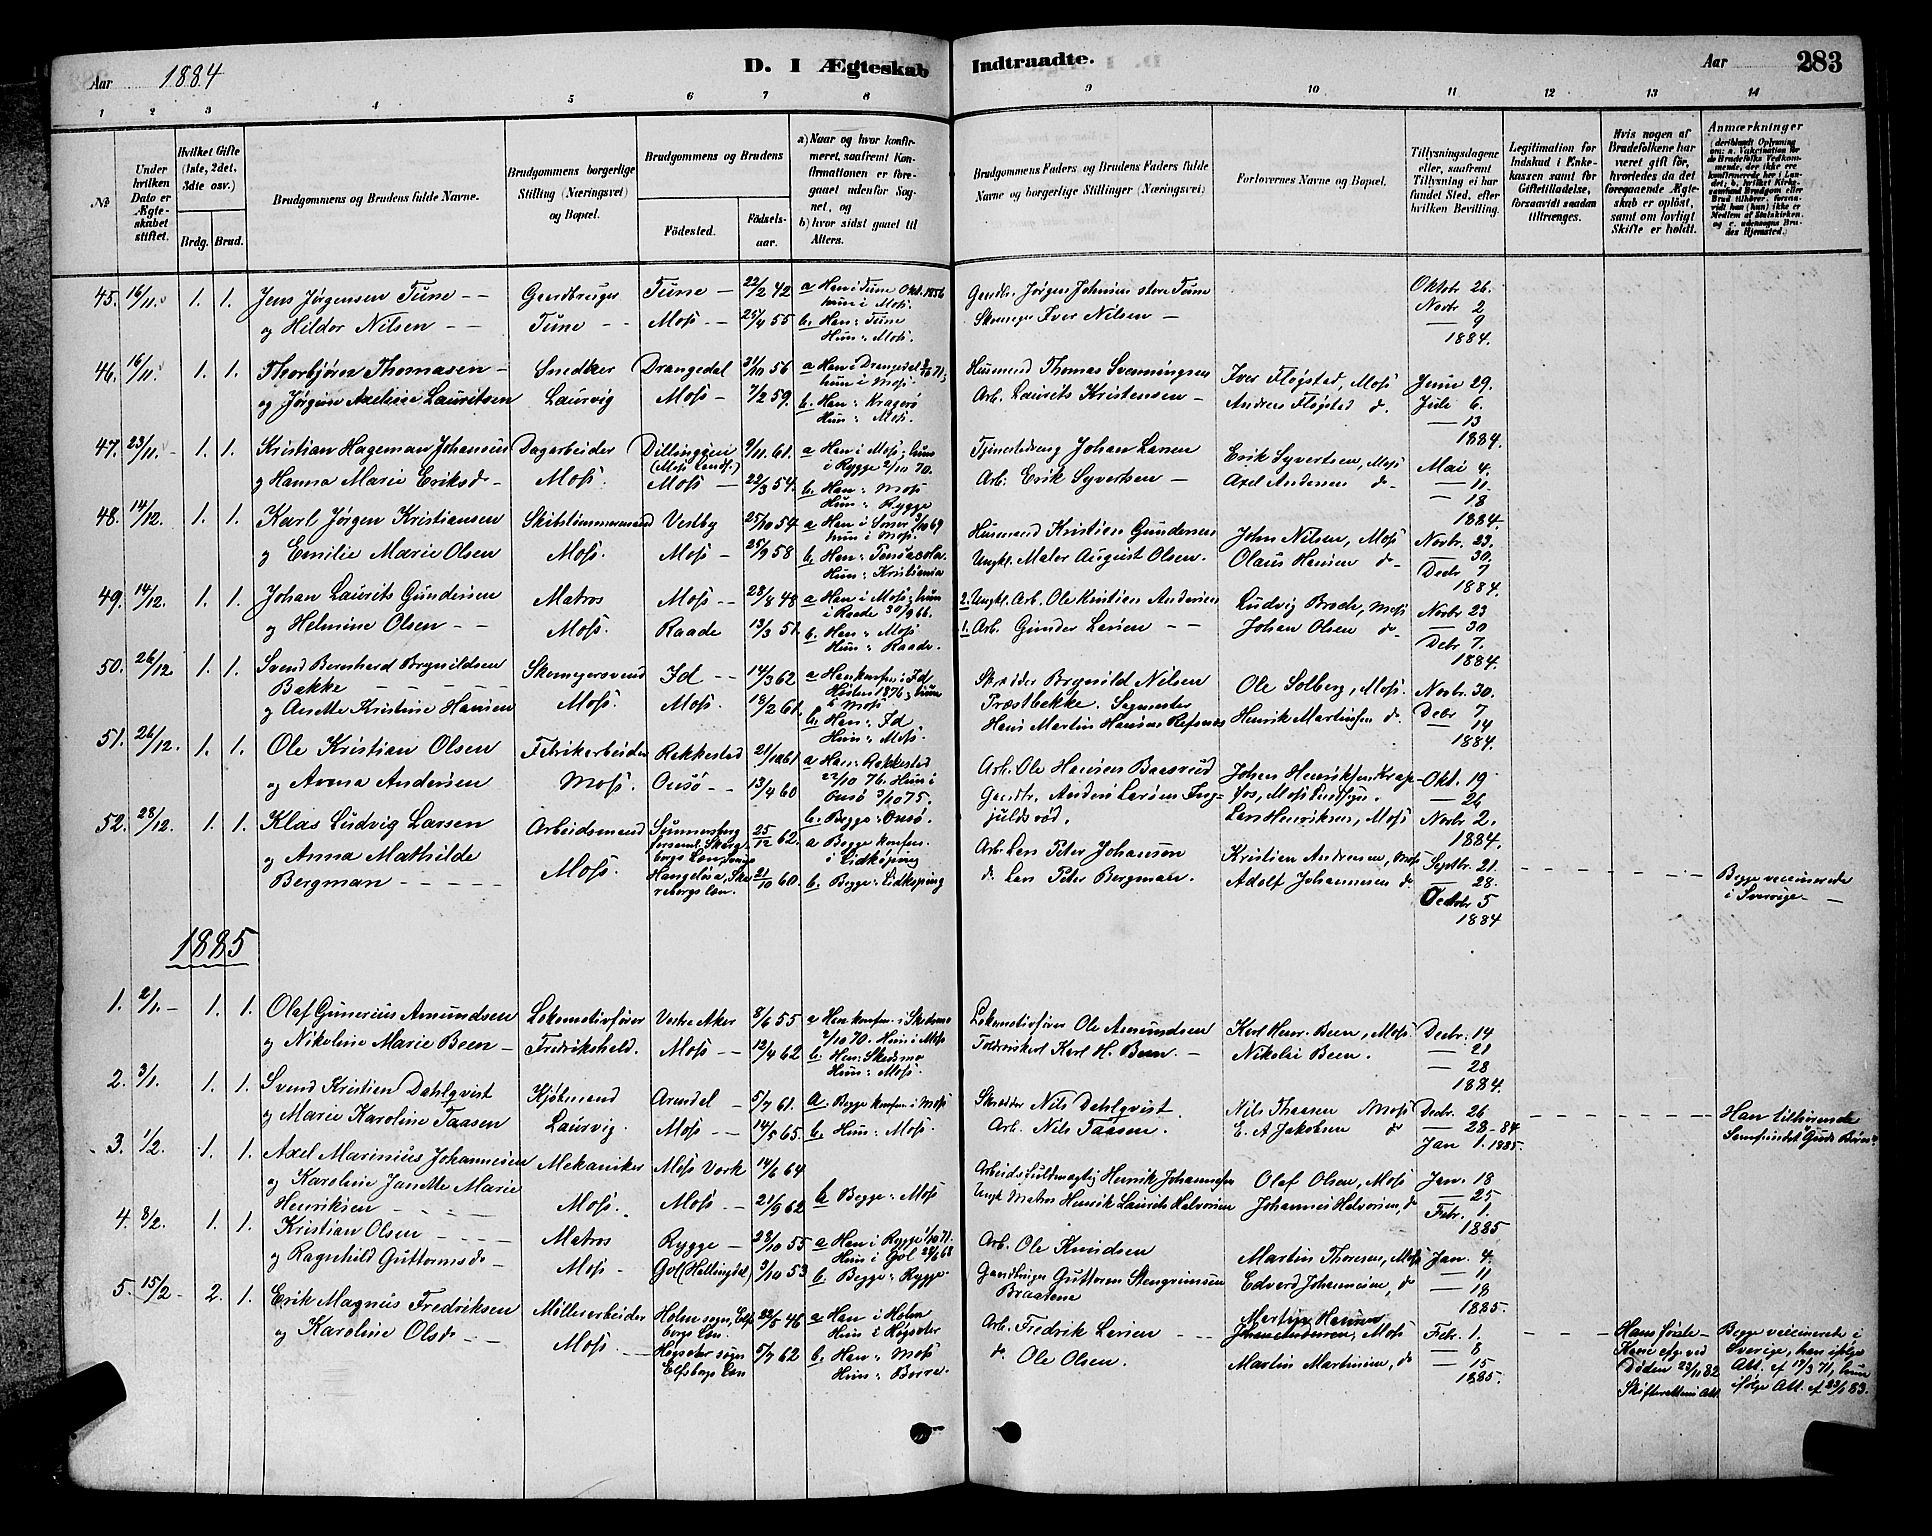 Aar 1884
D. I Ægteskab Indtraadte.
Aar 283
1 2 3 4 5 6 7 8 9 10 11 12 13 14
No
Under hvilken Dato er Ægteskabet stiftet.
Hvilket Gifte (1ste, 2det, 3dte osv.)
Brdg. Brud.
Brudgommens og Brudens fulde Navne.
Brudgommens borgerlige Stilling (Næringsvei) og Bopæl.
Brudgommens og Brudens
Fødested.
Fødselsaar.
a) Naar og hvor konfirmeret, saafremt Konfirmationen er foregaaet udenfor Sognet, og
b) hvor sidst gaaet til Alters.
Brudgommens Faders og Brudens Faders fulde Navne og borgerlige Stillinger (Næringsvei)
Forlovernes Navne og Bopæl.
Tillysningsdagene eller, saafremt Tillysning ei har fundet Sted, efter hvilken Bevilling.
Legitimation for Indskud i Enkekassen samt for Giftetilladelse, forsaavidt saadan tiltrænges.
Hvis nogen af Brudefolkene har været gift før, hvorledes da det foregaaende Ægteskab er opløst, samt om lovligt Skifte er holdt.
Anmærkninger
45. 16/11. 1. 1. Jens Jørgensen Tune
og Hildor Nilsen
Gaardbruger
Tune
Tune 22/2 42
Moss 25/4 55
a Han i Tune Okt. 1856
hun i Moss.
b. Han: Tune
Hun: Moss.
Gaardbr. Jørgen Johnsen store Tune
Iver Nilsen
Oktbr 26.
Novbr 2
— 9
1884.
46. 16/11. 1. 1. Thorbjørn Thomasen
og Jørgine Axeline Lauritsen
Snedker
Laurvig
Drangedal 21/10 56
Moss 7/2 59.
a Han i Drangedal 71,
hun i Moss.
b. Han: Kragerø
Hun: Moss.
Husmand Thomas Svenningsen
Arb. Laurits Kristensen
Iver Fløgstad, Moss
Andreas Fløgstad d.
Juni 29.
Juli 6.
— 13
1884.
47. 23/11. 1. 1. Kristian Hageman Johansen
og Hanna Marie Eriksd
Dagarbeider
Moss.
Dillingøen
(Moss Landss.) 9/11 61.
Moss 22/3 54.
a Han i Moss; hun
i Rygge 2/10 70.
b. Han: Moss
Hun: Rygge
Tjenestedreng Johan Larsen
Arb. Erik Syvertsen
Erik Syvertsen, Moss
Axel Andersen d
Mai 4.
— 11
— 18
1884.
48. 14/12. 1. 1. Karl Jørgen Kristiansen
og Emilie Marie Olsen
Skibstømmermand
Moss.
Vestby 25/10 54.
Moss 25/9 58
a Han i 69
hun i Moss.
b. Han: Pensacola.
Hun: Kristiania
Husmand Kristian Gundersen
Ungkl. Maler August Olsen.
John Nilsen, Moss
Olaus Hansen d
Novbr. 23.
— 30.
Decbr 7
1884.
49. 14/12. 1. 1. Johan Laurits Gundersen
og Helmine Olsen
Matros
Moss.
Moss 28/8 48
Raade 13/3 51.
a Han i Moss; hun
i Raade 30/9 66.
b. Han: Moss
Hun: Raade.
2. Ungkl. Arb. Ole Kristian Andersen
1. Arb. Gunder Larsen
Ludvig Brode, Moss
Johan Olsen d
Novbr 23
— 30
Debr 7.
1884.
50. 26/12 1. 1. Svend Bernhard Brynildsen
Bakke
og Anette Kristine Hansen
Skomagersvend
Moss.
Id 14/3 62
Moss. 18/2 61.
a Han konf. i Id
Høsten 1876; hun
i Moss
b. Han: Id
Hun: Moss.
Skrædder Brynild Nilsen
Præstbakke. Sagmester
Hans Martin Hansen Refsnes
Ole Solberg, Moss.
Henrik Martinsen d.
Novbr. 30.
Debr 7
— 14
1884.
51. 26/12. 1. 1. Ole Kristian Olsen
og Avena Andersen
Fabrikarbeider
Moss.
Rakkestad 21/10 61
Onsø 13/4 60
a Han: Rakkestad
22/10 76. Hun i
Onsø 3/10 75.
b. Begge: Onsø.
Arb. Ole Hansen Baasrud
Gaardbr. Anders Larsen Ingjuldsrød.
Johan Henriksen Krapfos, Moss Landsogn.
Lars Henriksen, Moss
Okt. 19
— 26
Novbr 2.
1884.
52. 28/12. 1. 1. Klas Ludvig Larsen
og Anna Mathilde
Bergman
Arbeidsmand
Moss.
Sunnersberg 25/12 62.
Hangelösa, Skaraborgs Län 21/10 60.
a Begge konf.
i Lidköping
b. Begge: Lidköping
Arb. Lars Peter Johanson
d. Lars Peter Bergman
Kristian Andersen, Moss
Adolf Johannesen d
Septbr. 21.
— 28.
Octbr 5
1884
Begge vaccinerede
i Sverige
1885
1. 2/1. 1. 1. Olaf Gunerius Amundsen
og Nikoline Marie Been
Lokomotivfører
Fredrikshald.
Vestre Aker 8/6 55
Moss 12/4 62
a Han konf. i Skedsmo
2/10 70. Hun i Moss
b. Han: Skedsmo
Hun: Moss.
Lokomotivfører Ole Amundsen
Karl H. Been.
Karl Henr. Been, Moss
Nikolai Been.
Decbr. 14
— 21
— 28
1884.
2. 3/1. 1. 1. Svend Kristian Dahlqvist
og Marie Karoline Taasen
Kjøbmand
Laurvig
Arendal 5/7 61.
Moss 14/5 65.
a. Begge konf. i Moss
b. Hun: Moss.
Skrædder Nils Dahlqvist.
Arb. Nils Taasen.
Nils Thaasen Moss
E. A. Jakobsen d
Decbr. 26
— 28-84.
Jan 1. 1885.
Han tilhørende
Samfundet "Guds Børn"
3. 1/2. 1. 1. Axel Marinius Johannesen
og Karoline Janette Marie
Henriksen
Mekaniker
Moss.
Moss Værk 14/6 64
Moss 21/9 62
b Begge: Moss
Arbeidsfuldmægtig Henrik Johannessen
Ungk Matros Henrik Laurits Halvorsen
Olaf Olsen, Moss
Johannes Halvorsen, d
Jan. 18
— 25
Febr. 1.
1885
4. 8/2. 1. 1. Kristian Olsen
og Ragnhild Guttormsd
Matros
Moss
Rygge 28/10 55
Gol (Hallingdal) 3/10 53
a Han i Rygge 1/10 71.
Hun i Gol 28/6 68
b. Begge: Rygge
Arb. Ole Knudsen
Gaardbruger Guttorm Stengrimsen
Braatene
Martin Thoresen, Moss
Edvard Johannesen, d
Jan. 4.
— 11
— 18
1885.
5. 15/2 2. 1. Erik Magnus Fredriksen
og Karoline Olsd
Møllearbeider
Moss.
Holm sogn, Elfsborgs Län. 22/5 46
Högsäter sogn
Elfsborgs Län 5/7 62
a Han i Holm
Hun i Högsäter
b. Han: Moss
Hun: Borre.
Arb. Fredrik Larsen
d. Ole Olsen.
Martin Hansen
Moss
Martin Martinsen, d
Febr. 1.
— 8
— 15
1885.
Hans første
Kone afg. ved
Døden 23/11 82
Skifterettens Att.
Begge vaccinerede i
Sverige, han ifølge
Att. af 17/3 71, hun
ifølge Att. af 23/1 83.